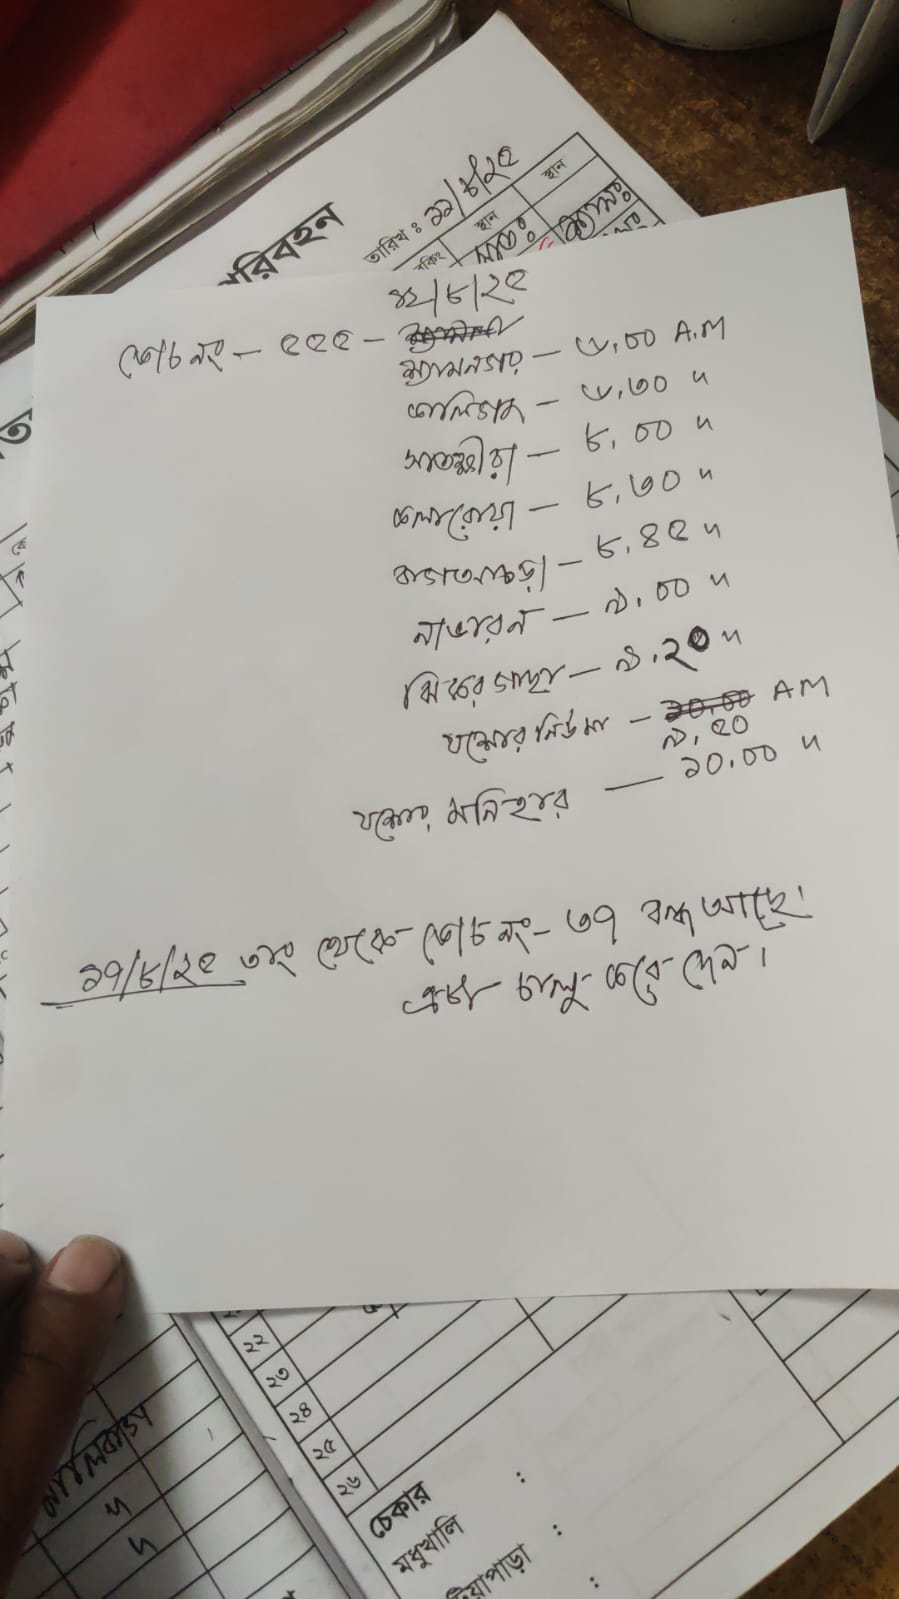 পরিবহন
তারিখ : ১১/৮/২৫
স্থান
স্থান
১২/৮/২৫
কোচ নং - ৫৫৫ -
শ্যামনগর - ৬.০০ A.M
কালিগঞ্জ - ৬.৩০ "
সাতক্ষীরা - ৮.০০ "
কলারোয়া - ৮.৩০ "
বাগআচড়া - ৮.৪৫ "
নাভারন - ৯.০০ "
ঝিকরগাছা - ৯.২০ "
যশোর নিউমা - ১০.০০ A M
৯.৫০
যশোর মনিহার - ১০.০০ "
১৭/৮/২৫ তাং থেকে কোচ নং- ৩৭ বন্ধ আছে।
এটা চালু করে দেন।
২২
২৩
২৪
২৫
২৬
চেকার :
মধুখালি :